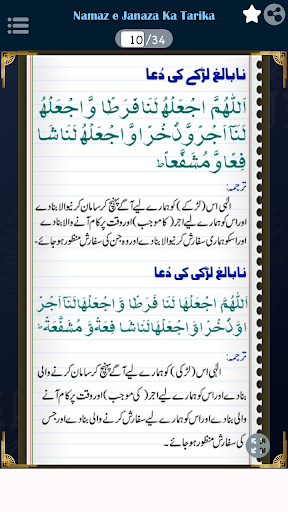 Namaz e Janaza Ka Tarika
10/34
نابالغ لڑکے کی دُعا
اَللّٰهُمَّ اجْعَلْهُ لَنَا فَرَطًا وَّاجْعَلْهُ
لَنَآ اَجْرًا وَّذُخْرًا وَّاجْعَلْهُ لَنَا شَا
فِعًا وَّمُشَفَّعًا ط
ترجمہ:
الٰہی اس (لڑکے) کو ہمارے لیے آگے پہنچ کر سامان کرنیوالا بنا دے
اور اس کو ہمارے لیے اجر (کا موجب) اور وقت پر کام آنے والا بنا دے
اور اسکو ہماری سفارش کرنیوالا بنا دے اور وہ جن کی سفارش منظور ہو جائے۔
نابالغ لڑکی کی دُعا
اَللّٰهُمَّ اجْعَلْهَا لَنَا فَرَطًا وَّاجْعَلْهَا لَنَآ اَجْرً
اوَّذُخْرًا وَّاجْعَلْهَا لَنَا شَافِعَةً وَّمُشَفَّعَةً ط
ترجمہ:
الٰہی اس (لڑکی) کو ہمارے لیے آگے پہنچ کر سامان کرنے والی
بنا دے اور اس کو ہمارے لیے اجر (کی موجب) اور وقت پر کام آنے
والی بنا دے اور اس کو ہمارے لیے سفارش کرنے والی بنا دے اور جس
کی سفارش منظور ہو جائے۔